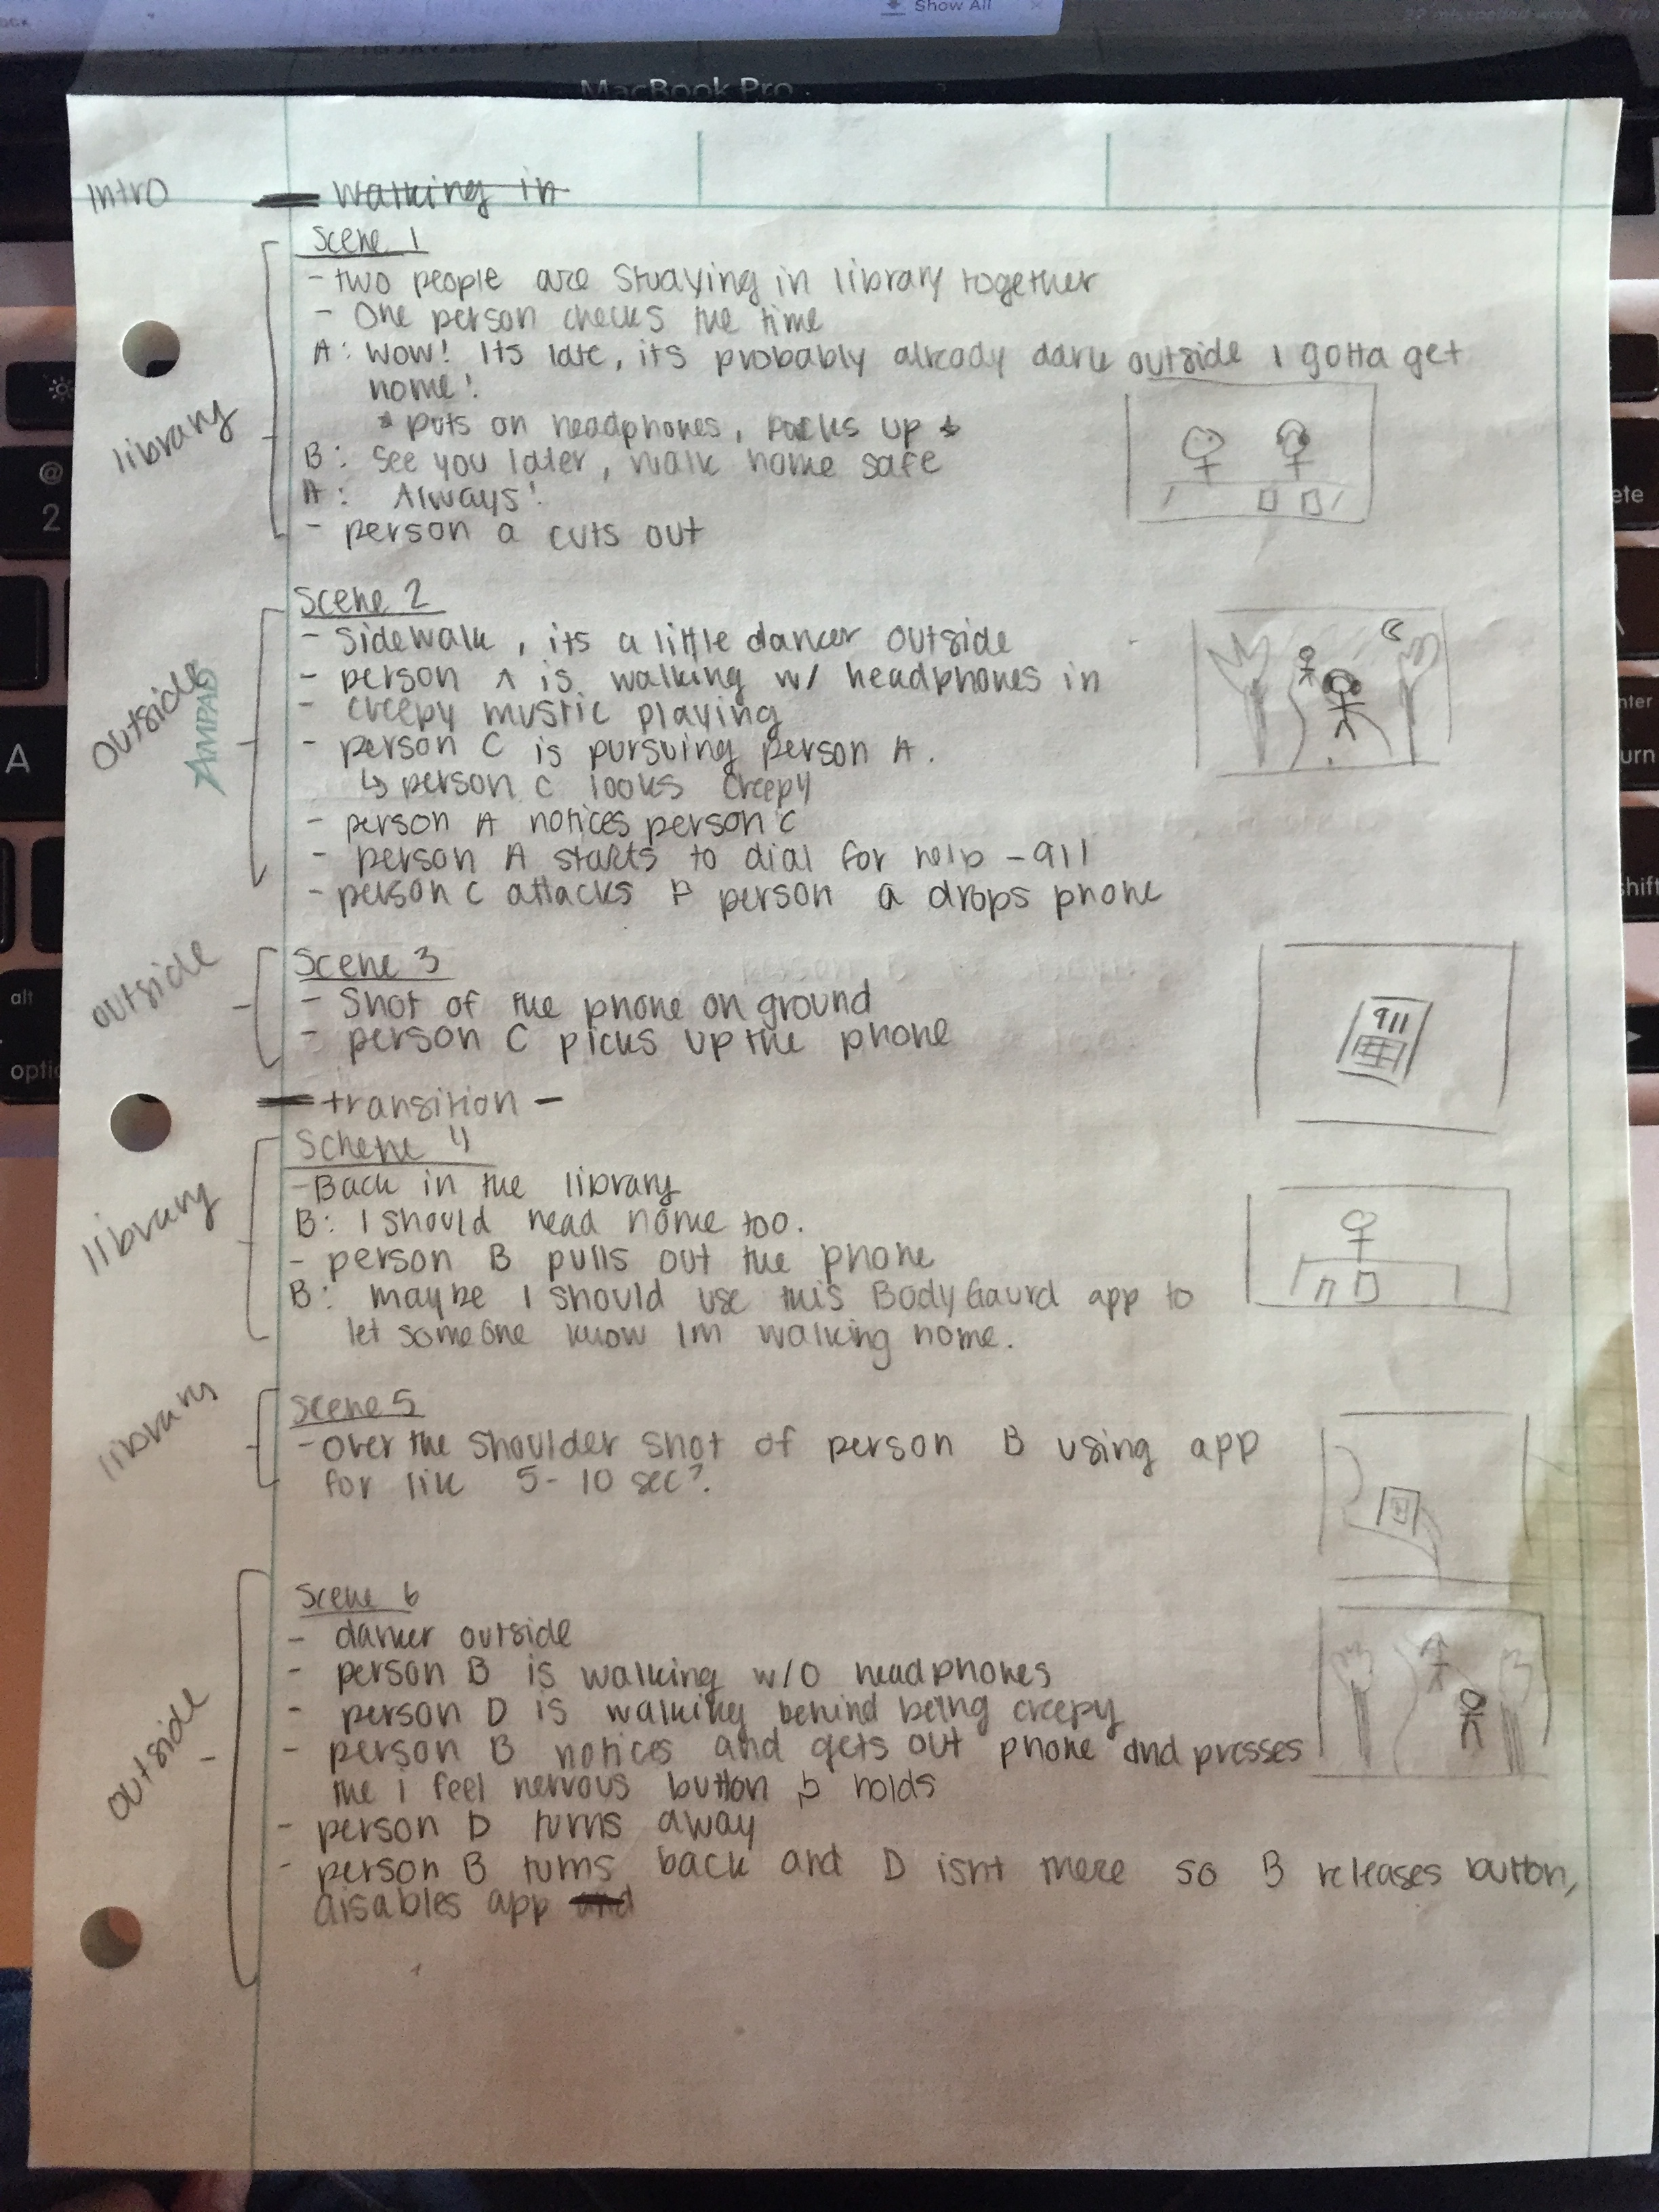 Show All
MacBook Pro
Intro
- Walking in
Scene 1
- two people are studying in library together
- One person checks the time
A: Wow! Its late, its probably already dark outside I gotta get
home!
* puts on headphones, packs up *
B: See you later, walk home safe
A: Always!
- person a cuts out
library
Scene 2
- Sidewalk, its a little darker outside
- person A is walking w/ headphones in
- creepy mustic playing
- person C is pursuing person A.
↳ person C looks creepy
- person A notices person C
- person A starts to dial for help - 911
- person C attacks & person a drops phone
outside
AMPAD
Scene 3
- Shot of the phone on ground
- person C picks up the phone
outside
911
- transition -
Schene 4
- Back in the library
B: I should head home too.
- person B pulls out the phone
B: maybe I should use this BodyGaurd app to
let someone know Im walking home.
library
Scene 5
- over the shoulder shot of person B using app
for lik 5-10 sec?
library
Scene 6
- darker outside
- person B is walking w/o headphones
- person D is walking behind being creepy
- person B notices and gets out phone and presses
the i feel nervous button & holds
- person D turns away
- person B turns back and D isnt there so B releases button,
disables app and
outside
@
2
A
alt
optio
ete
nter
urn
shift